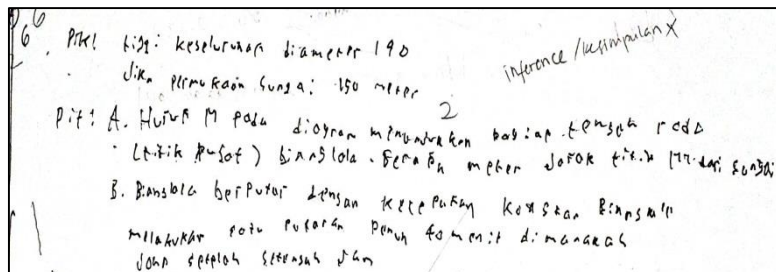 Dik! tigg: keseluruhan diameter 190
inference / kesimpulan X
Jika permukaan sunga: 150 meter
2
Dit! A. Huruf M pada diagram menunjukkan bagiap tengah roda
(titik pusat) bianglola. Berapa meter jarak titik M dari sungai
B. Bianglola berputar dengan kecepatan konstan
melakukan satu putaran penuh 40 menit dimanakah
John setelah setengah jam